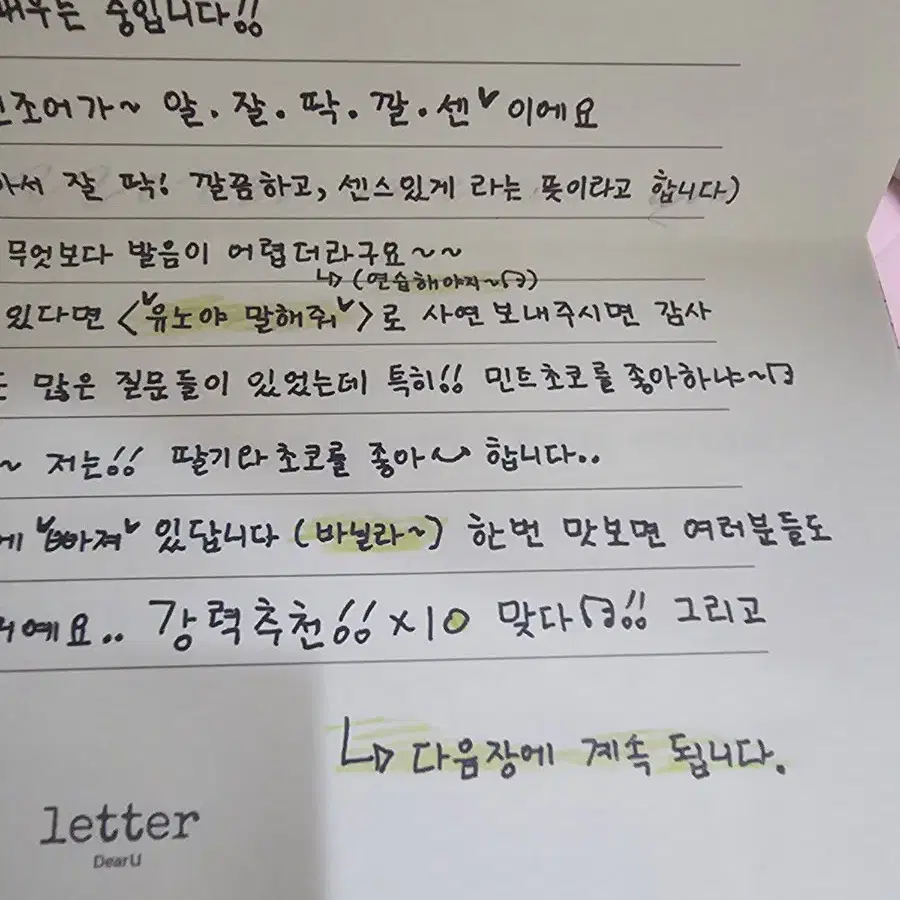 배우는 중입니다!!
신조어가~ 알.잘.딱.깔.센♥이에요
아서 잘 딱! 깔끔하고, 센스있게 라는 뜻이라고 합니다)
무엇보다 발음이 어렵더라구요~~
↳(연습해야지~)
있다면 <♥유노야 말해줘♥>로 사연 보내주시면 감사
많은 질문들이 있었는데 특히!! 민트초코를 좋아하냐~
~ 저는!! 딸기와 초코를 좋아~ 합니다..
에 ♥빠져♥ 있답니다 (바닐라~) 한번 맛보면 여러분들도
거예요.. 강력추천!! x10 맞다!! 그리고
↳ 다음장에 계속 됩니다.
letter
DearU